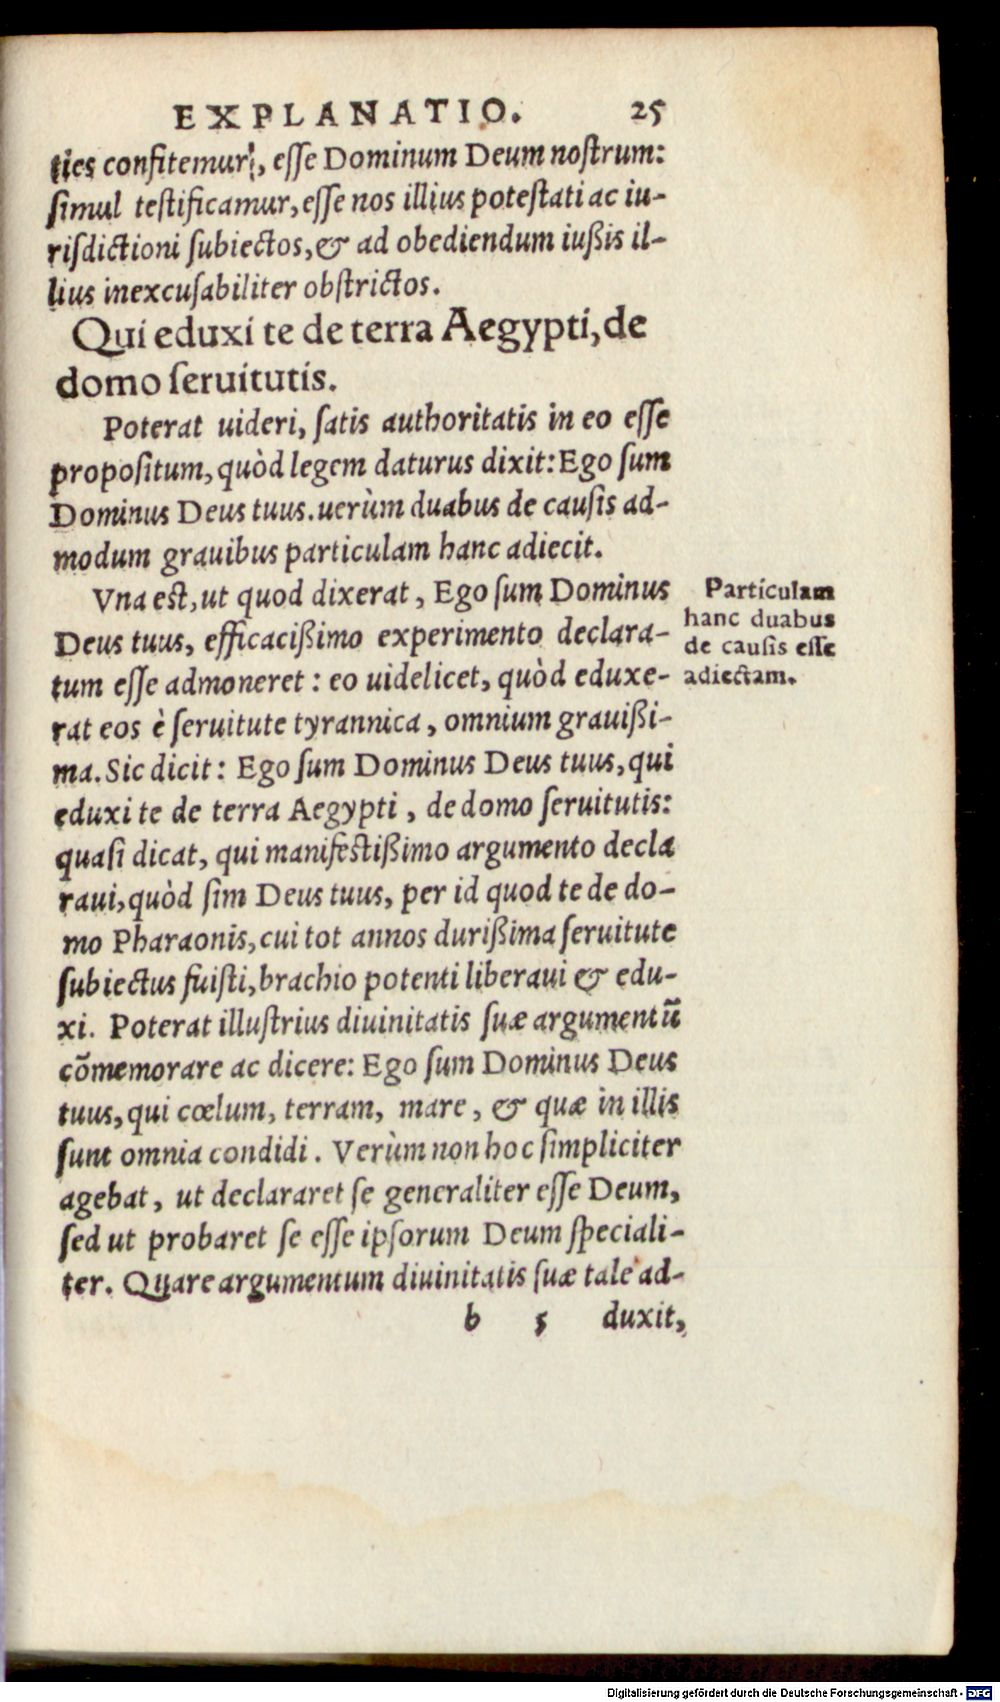 EXPLANATIO. 25
ties confitemur, eſſe Dominum Deum noſtrum:
ſimul teſtificamur, eſſe nos illius poteſtati ac iu-
riſdictioni ſubiectos, & ad obediendum iußis il-
lius inexcuſabiliter obſtrictos.
Qui eduxi te de terra Aegypti, de
domo ſeruitutis.
Poterat uideri, ſatis authoritatis in eo eſſe
propoſitum, quòd legem daturus dixit: Ego ſum
Dominus Deus tuus. uerùm duabus de cauſis ad-
modum grauibus particulam hanc adiecit.
Vna eſt, ut quod dixerat, Ego ſum Dominus
Deus tuus, efficacißimo experimento declara-
tum eſſe admoneret: eo uidelicet, quòd eduxe-
rat eos è ſeruitute tyrannica, omnium grauißi-
ma. Sic dicit: Ego ſum Dominus Deus tuus, qui
eduxi te de terra Aegypti, de domo ſeruitutis:
quaſi dicat, qui manifeſtißimo argumento decla
raui, quòd ſim Deus tuus, per id quod te de do-
mo Pharaonis, cui tot annos durißima ſeruitute
ſubiectus fuiſti, brachio potenti liberaui & edu-
xi. Poterat illuſtrius diuinitatis ſuæ argumentũ
cõmemorare ac dicere: Ego ſum Dominus Deus
tuus, qui cœlum, terram, mare, & quæ in illis
ſunt omnia condidi. Verùm non hoc ſimpliciter
agebat, ut declararet ſe generaliter eſſe Deum,
ſed ut probaret ſe eſſe ipſorum Deum ſpeciali-
ter. Quare argumentum diuinitatis ſuæ tale ad-
b 5 duxit,
Particulam
hanc duabus
de cauſis eſſe
adiectam.
Digitalisierung gefördert durch die Deutsche Forschungsgemeinschaft - DFG